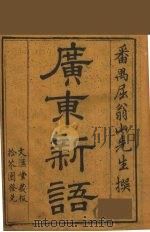 番禺屈翁山先生撰
廣東新語
文匯堂藏板
拾芥園發兌